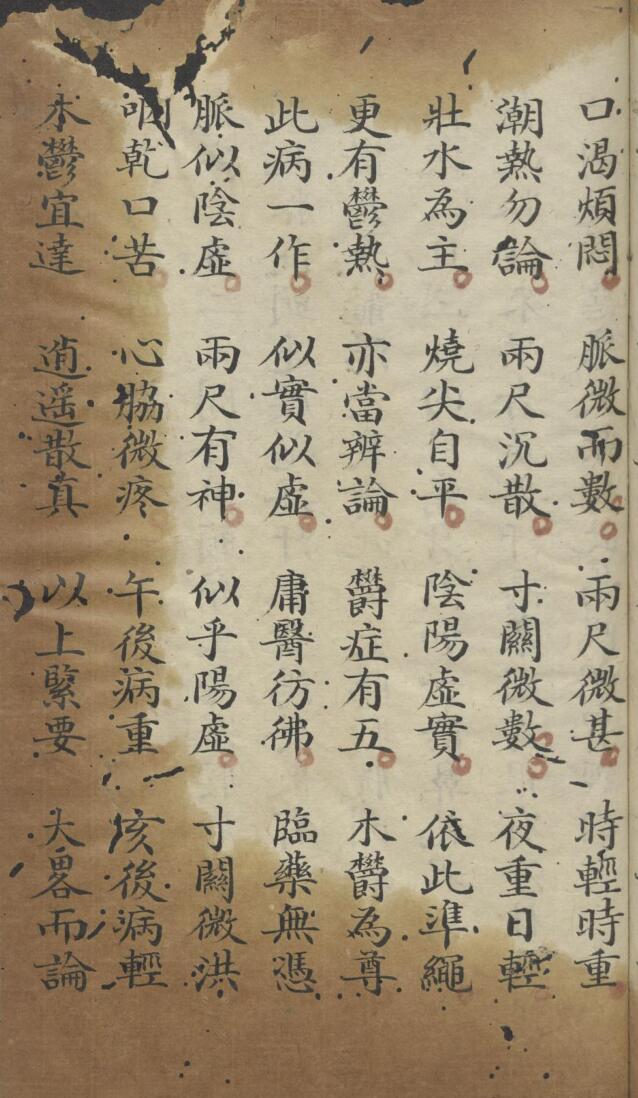 口渴煩悶 脈微而數 兩尺微甚 時輕時重
潮熱勿論 兩尺沉散 寸關微數 夜重日輕
壯水為主 燒尖自平 陰陽虛實 依此準繩
更有鬱熱 亦當辨論 欝症有五 木欝為尊
此病一作 似實似虛 庸醫彷彿 臨藥無憑
脈似陰虛 兩尺有神 似乎陽虛 寸關微洪
咽乾口苦 心脇微疼 午後病重 亥後病輕
木鬱宜達 逍遥散真 以上緊要 大畧而論